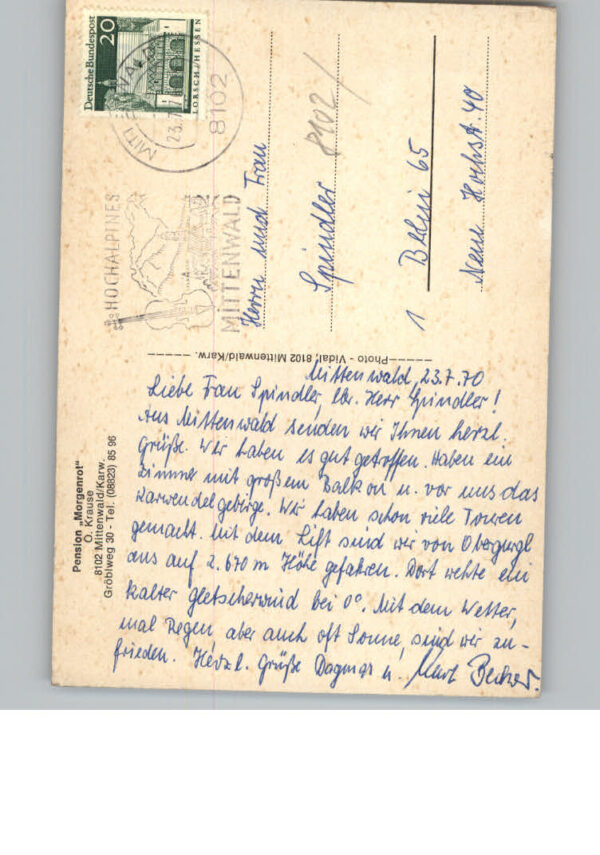 Deutsche Bundespost
20
LORSCH/HESSEN
MITTENWALD
23.7.
8102
HOCHALPINES
MITTENWALD
8102
Herrn und Frau
Spindler
1 Berlin 65
Neue Hochst. 40
Photo - Vidal, 8102 Mittenwald/Karw.
Pension „Morgenrot"
O. Krause
8102 Mittenwald/Karw.
Gröblweg 30 - Tel. (08823) 85 96
Mittenwald, 23.7.70
Liebe Frau Spindler, lbr. Herr Spindler!
Aus Mittenwald senden wir Ihnen herzl.
Grüße. Wir haben es gut getroffen. Haben ein
Zimmer mit großem Balkon u. vor uns das
Karwendelgebirge. Wir haben schon viele Touren
gemacht. Mit dem Lift sind wir von Obergurgl
aus auf 2.670 m Höhe gefahren. Dort wehte ein
kalter Gletscherwind bei 0°. Mit dem Wetter,
mal Regen, aber auch oft Sonne, sind wir zu-
frieden. Herzl. Grüße Dagmar u.